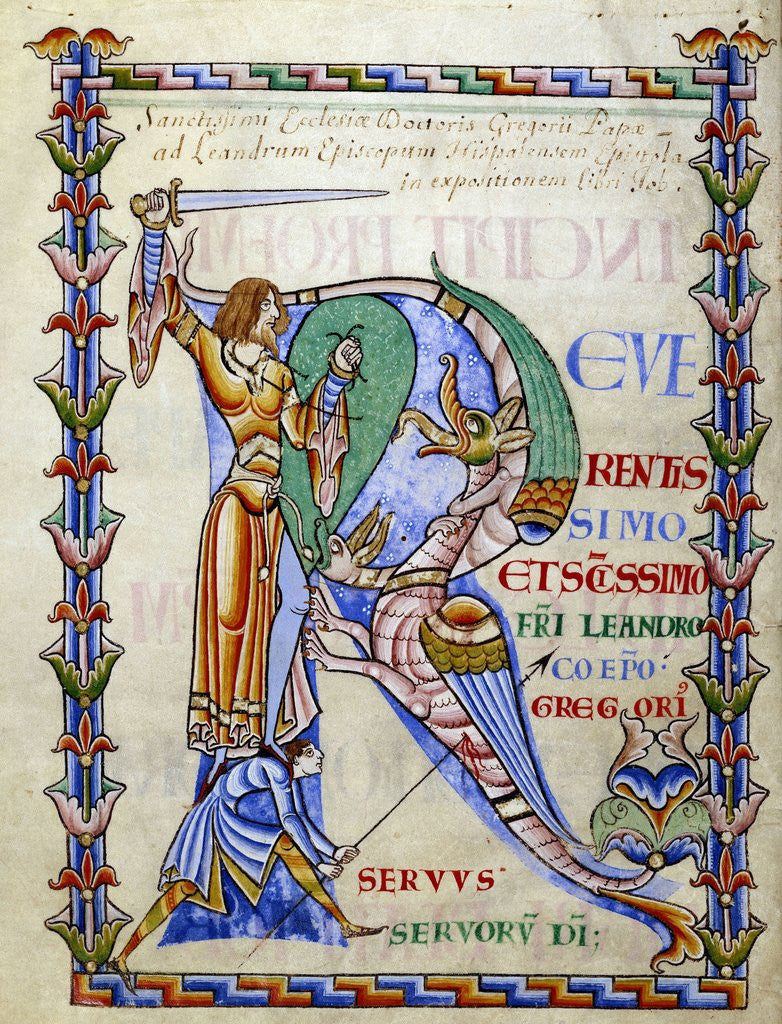 Sanctissimi Ecclesiæ Doctoris Gregorii Papæ
ad Leandrum Episcopum Hispalensem Epistola
in expositionem libri Job.
INCIPIT PROEM
R
EVE
RENTIS
SIMO
ET SC̅ISSIMO
FR̅I LEANDRO
COEP̅O·
GREGORI᾽
SERVVS
SERVORV̅ DI̅;